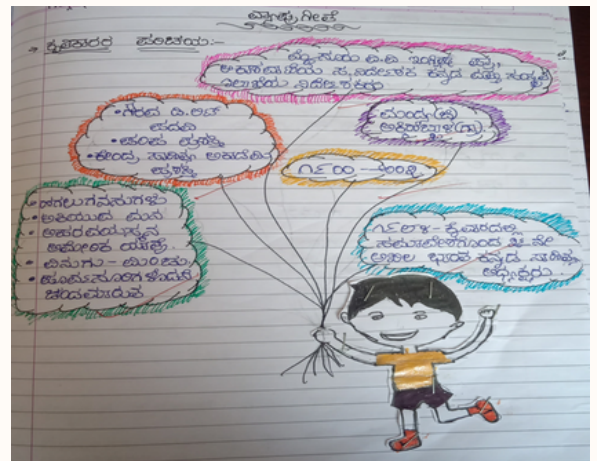 ವ್ಯಾಘ್ರಗೀತೆ
→ ಕೃತಿಕಾರರ ಪರಿಚಯ:-
ಮೈಸೂರು ವಿ.ವಿ ಇಂಗ್ಲೀಷ್ ಮತ್ತು
ಆಕಾಶವಾಣಿಯ ಸ. ನಿರ್ದೇಶಕ ಕನ್ನಡ ಮತ್ತು ಸಂಸ್ಕೃತಿ
ಇಲಾಖೆಯ ನಿರ್ದೇಶಕರು
• ಗೌರವ ಡಿ.ಲಿಟ್
ಪದವಿ
• ಪಂಪ ಪ್ರಶಸ್ತಿ
• ಕೇಂದ್ರ ಸಾಹಿತ್ಯ ಅಕಾಡೆಮಿ
ಪ್ರಶಸ್ತಿ
ಮಂಡ್ಯ(ಜಿ)
ಅಕ್ಕಿಹೆಬ್ಬಾಳು(ಗ್ರಾ)
೧೯೦೦ -
• ಹಗಲುಗನಸುಗಳು
• ಅಳಿಯುವ ಮನ
• ಅಮೆರಿಕ ಯಾತ್ರೆ
• ಮಿನುಗು - ಮಿಂಚು
೧೯೮೪ - ಕೈವಾರದಲ್ಲಿ
ಸಮಾವೇಶಗೊಂಡ ನೇ
ಅಖಿಲ ಭಾರತ ಕನ್ನಡ ಸಾಹಿತ್ಯ
ಅಧ್ಯಕ್ಷರು